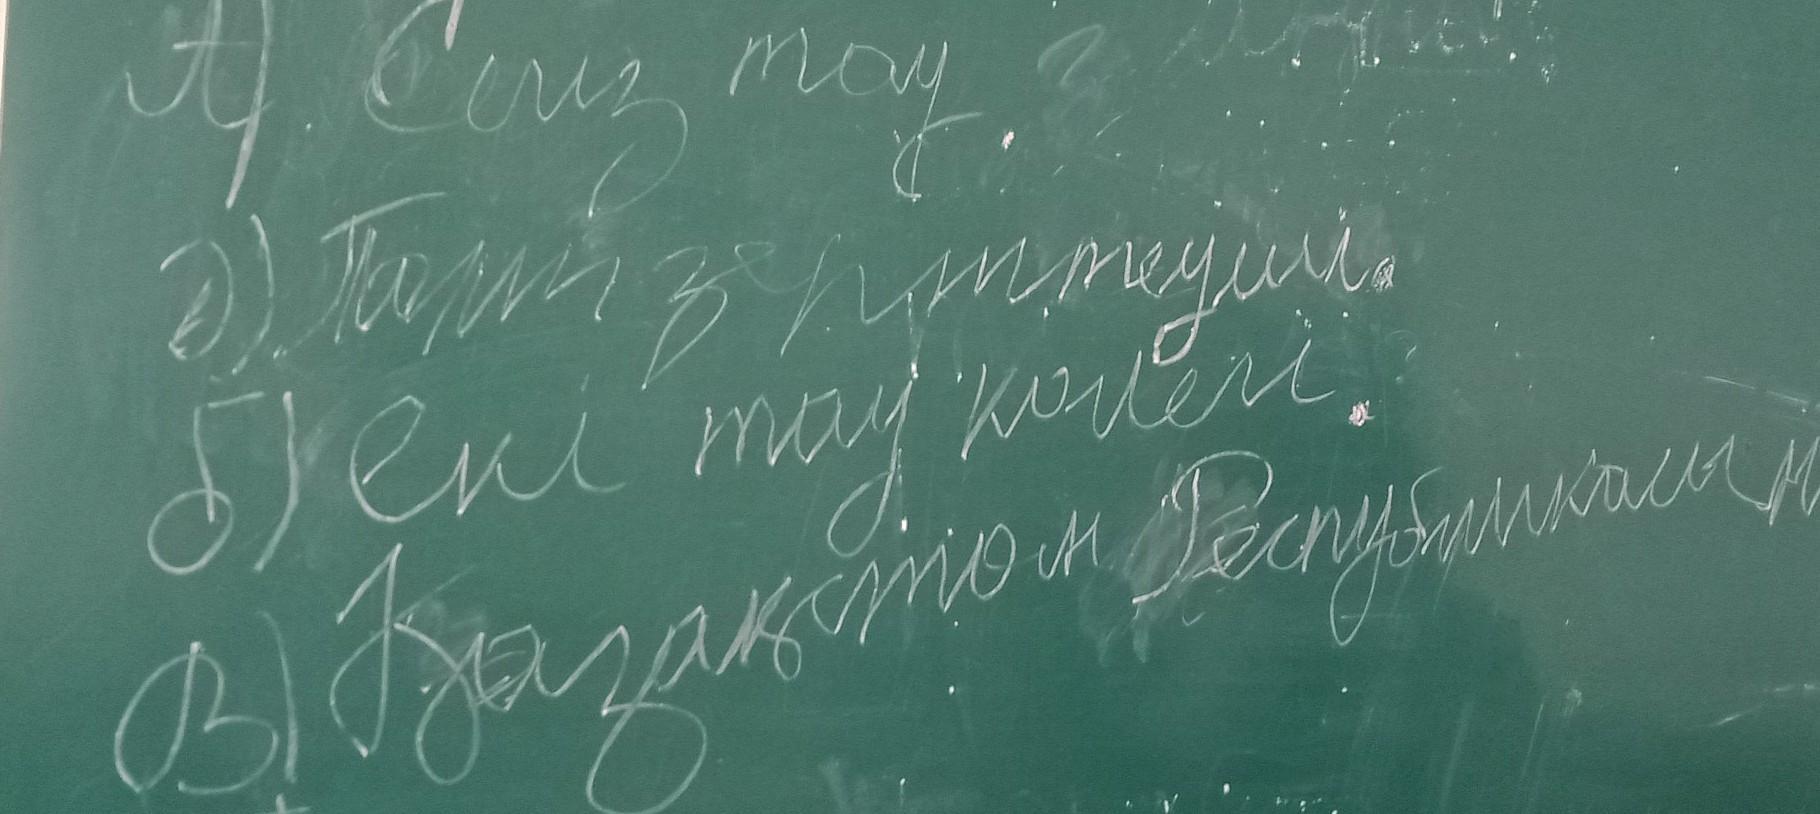 А) Сегіз тау
Ә) Тарих зерттеуші.
Б) Екі тау көлемі.
В) Қазақстан Республикасын